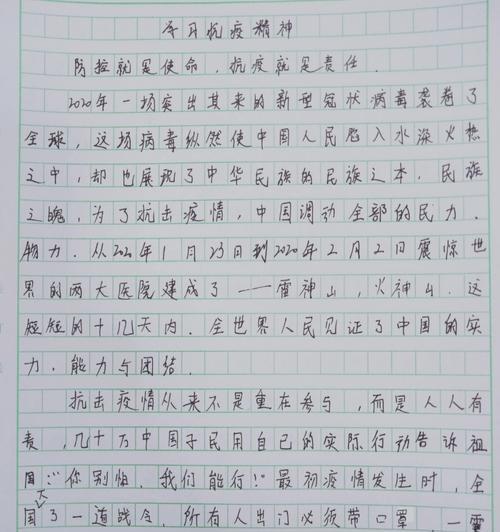 学习抗疫精神
防控就是使命,抗疫就是责任.
2020年一场突出其来的新型冠状病毒袭卷了
全球,这场病毒纵然使中国人民陷入水深火热
之中,却也展现了中华民族的民族之本,民族
之魄,为了抗击疫情,中国调动全部的民力.
物力.从2020年1月23日到2020年2月2日震惊世
界的两大医院建成了——雷神山,火神山.这
短短的十几天内.全世界人民见证了中国的实
力.能力与团结.
抗击疫情从来不是重在参与,而是人人有
责,几十万中国子民用自己的实际行动告诉祖
国:"你别怕,我们能行!"最初疫情发生时,全
国下了一道战令,所有人出门必须带口罩,一需